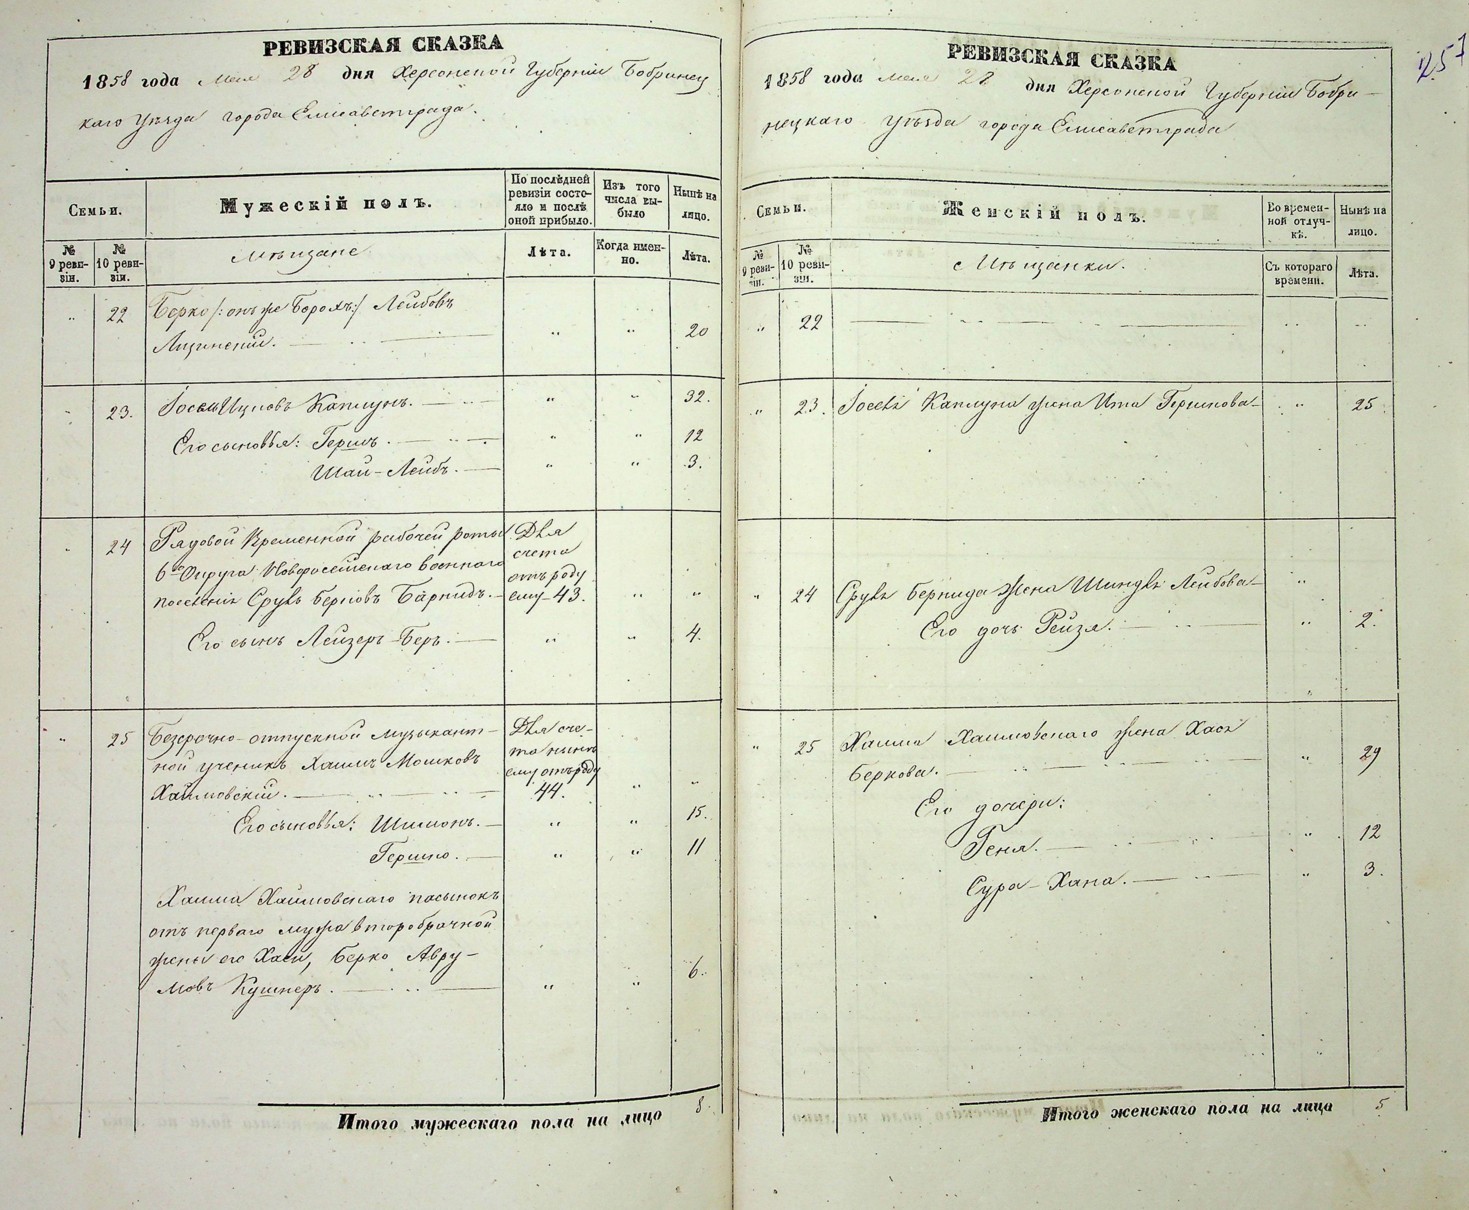 257
РЕВИЗСКАЯ СКАЗКА
1858 года Мая 28 дня Херсонской Губерніи Бобринец
каго Уѣзда города Елисаветграда.
Семьи.
Мужескій полъ.
По послѣдней ревизіи состояло и послѣ оной прибыло.
Изъ того числа выбыло
Нынѣ на лицо.
№ 9 ревизіи.
№ 10 ревизіи.
Мѣщане
Лѣта.
Когда именно.
Лѣта.
22 Берко /: онъ же Борохъ:/ Лейбовъ
" " 20
23. Іосель Ицковъ Каплунъ. " " 32.
Его сыновья: Гершъ. " " 12
Шай-Лейбъ. " " 3.
24 Рядовой Временной рабочей роты Для
6го Округа Новоросійскаго военнаго счета
отъ роду
поселенія Сруль Берковъ Барнидъ. ему 43. " "
Его сынъ Лейзеръ-Беръ. " " 4.
" 25 Безсрочно-отпускной музыкант- Для сче-
ной ученикъ Хаимъ Мошковъ та нынѣ
ему отъ роду
Хаимовскій. 44. " "
Его сыновья: Шимонъ. " " 15.
Гершко. " " 11
Хаима Хаимовскаго пасынокъ
отъ перваго мужа второбрачной
жены его Хаси, Берко Авру-
мовъ Кушнеръ. " " 6.
Итого мужескаго пола на лицо 8.
РЕВИЗСКАЯ СКАЗКА
1858 года Мая 28 дня Херсонской Губерніи Бобри-
нецкаго Уѣзда города Елисаветграда
Семьи.
Женскій полъ.
Во временной отлучкѣ.
Нынѣ на лицо.
№ 9 ревизіи.
№ 10 ревизіи.
Мѣщанки.
Съ котораго времени.
Лѣта.
" 22
" 23. Іосель Каплуна жена Ита Гершкова " 25
" 24 Сруль Барнида жена Шиндль Лейбова "
Его дочь Рейзя. " 2.
" 25 Хаима Хаимовскаго жена Хася
Беркова. " 29
Его дочери:
Геня. " 12
Сура-Хана. " 3.
Итого женскаго пола на лицо 5